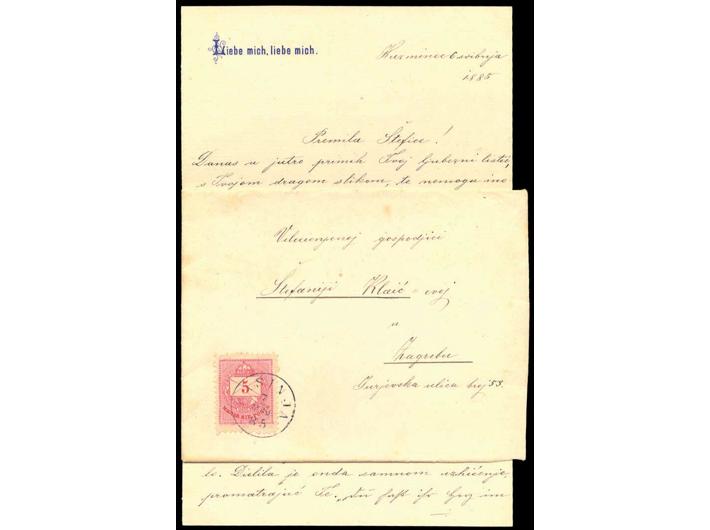 Liebe mich, liebe mich.
svibnja
1885
Premila Štefice!
Danas u jutro primih Tvoj ljubezni listić,
s Tvojom dragom slikom, te nemogu ino
gospodjici
Štefaniji Klaić-evoj
u
Zagrebu
Jurjevska ulica broj 53.
5
SINJA
le. Dielila je onda samnom ushićenje,
promatrajuć Te. „Du hast ihr im